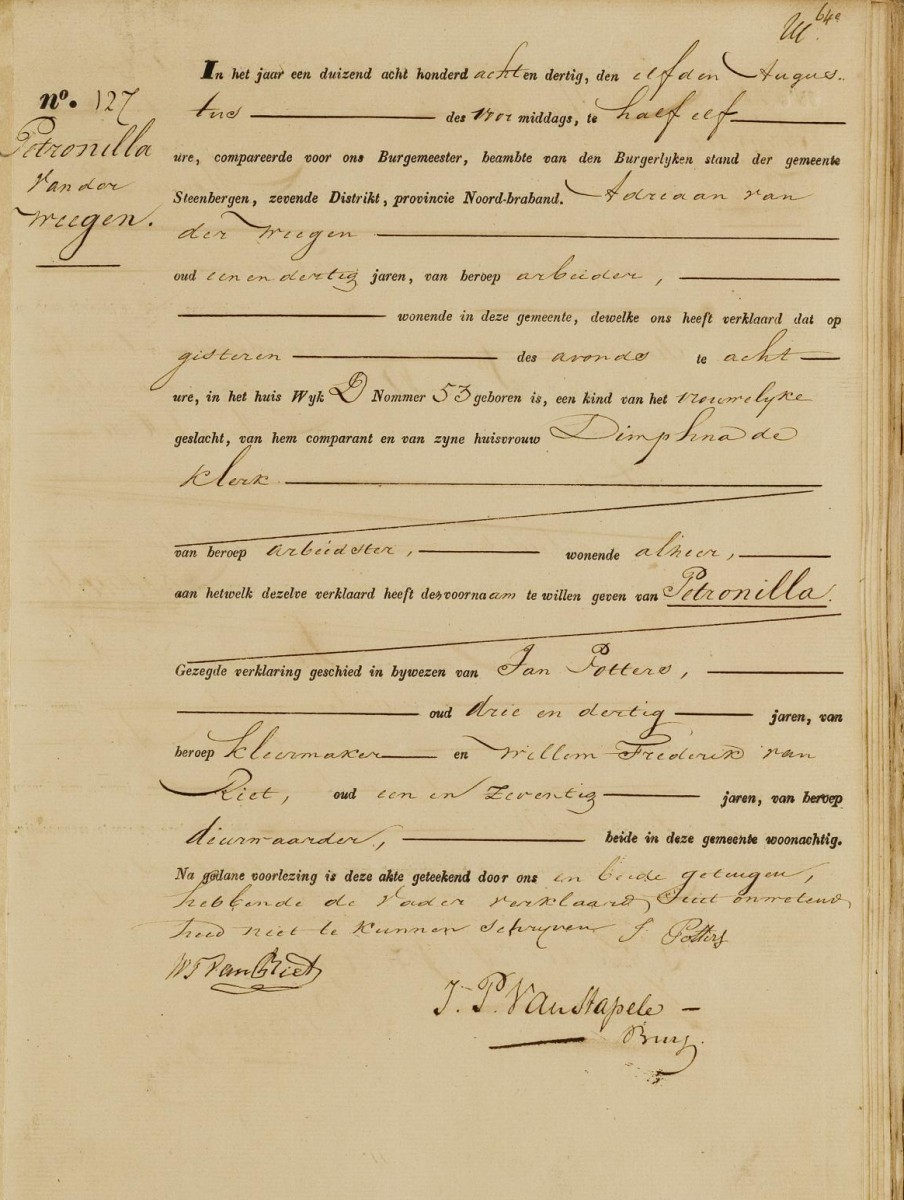 64e
nº. 127
Petronilla
Van der
Weegen.
In het jaar een duizend acht honderd achten dertig, den elfden Augus-
tus des voormiddags, te half elf
ure, compareerde voor ons Burgemeester, beambte van den Burgerlyken stand der gemeente
Steenbergen, zevende Distrikt, provincie Noord-braband. Adriaan van
der Weegen
oud een en dertig jaren, van beroep arbeider,
wonende in deze gemeente, dewelke ons heeft verklaard dat op
gisteren des avonds te acht
ure, in het huis Wyk D Nommer 53 geboren is, een kind van het vrouwelyke
geslacht, van hem comparant en van zyne huisvrouw Dimphna de
Klerk
van beroep arbeidster, wonende alhier,
aan hetwelk dezelve verklaard heeft de voornaam te willen geven van Petronilla.
Gezegde verklaring geschied in bywezen van Jan Potters,
oud drie en dertig jaren, van
beroep kleermaker en Willem Frederik van
Riet, oud een en zeventig jaren, van beroep
deurwaarder, beide in deze gemeente woonachtig.
Na gedane voorlezing is deze akte geteekend door ons en beide getuigen,
hebbende de Vader verklaard, uit onwetend
heid niet te kunnen schryven J. Potters
WF Van Riet
J. P. Van Stapele
Burg.